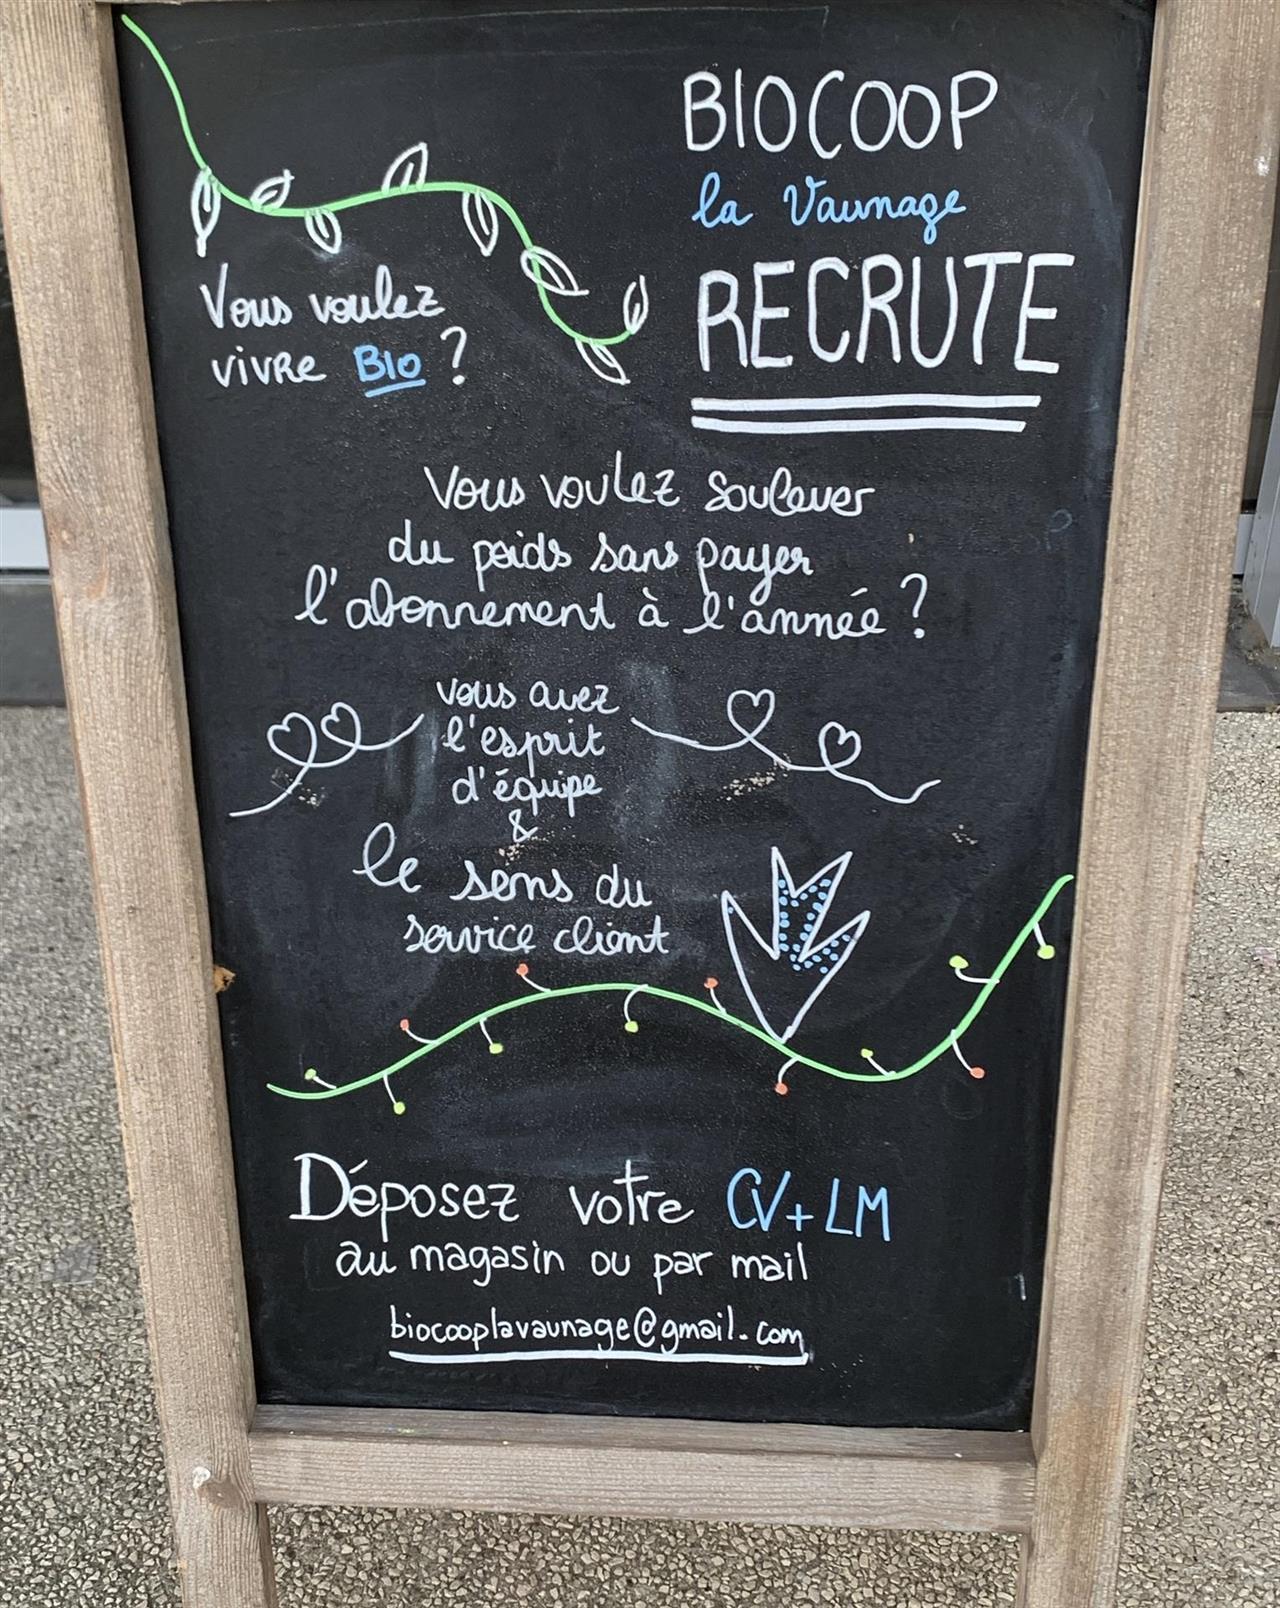 BIOCOOP
la Vaunage
RECRUTE
Vous voulez
vivre Bio ?
Vous voulez soulever
du poids sans payer
l'abonnement à l'année ?
vous avez
l'esprit
d'équipe
&
le sens du
service client
Déposez votre CV + LM
au magasin ou par mail
biocooplavaunage@gmail.com